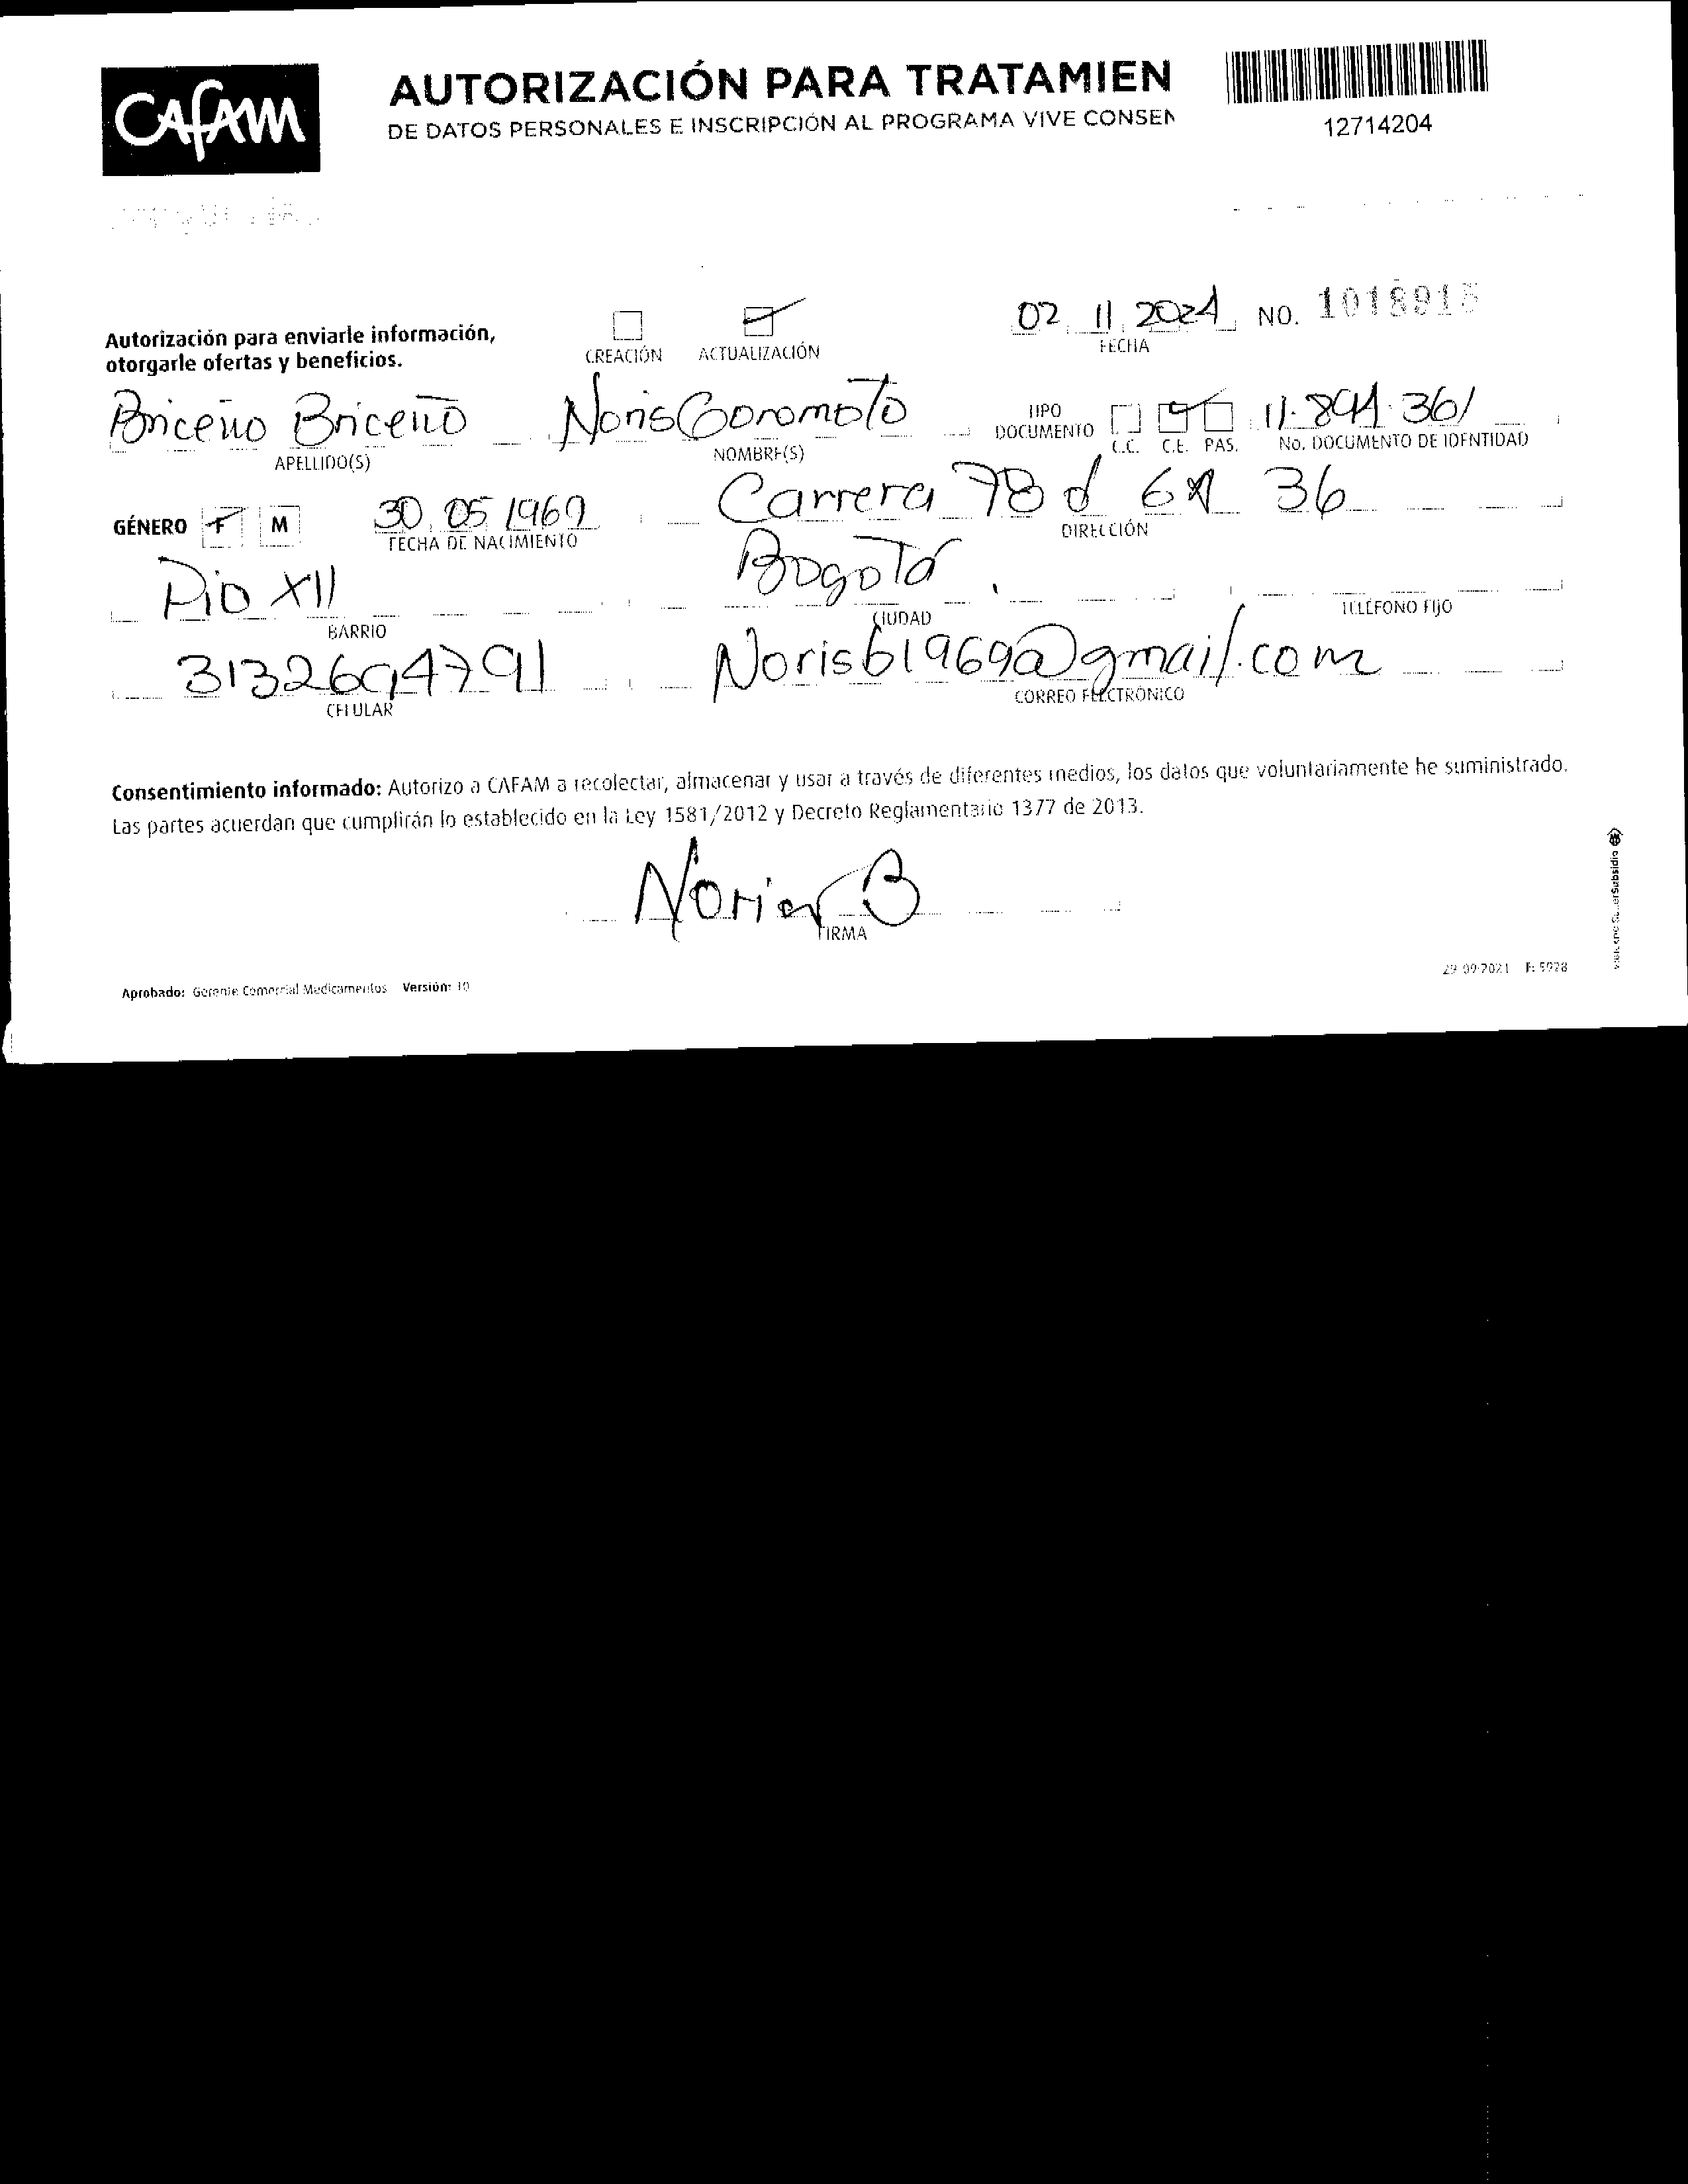 CAFAM
AUTORIZACIÓN PARA TRATAMIEN
DE DATOS PERSONALES E INSCRIPCIÓN AL PROGRAMA VIVE CONSEN
12714204
Autorización para enviarle información,
otorgarle ofertas y beneficios.
CREACIÓN ACTUALIZACIÓN
02 11 2024 NO. 1018915
FECHA
Briceño Briceño Noris Coromoto TIPO DOCUMENTO C.C. C.E. PAS. 11.894.361
APELLIDO(S) NOMBRE(S) No. DOCUMENTO DE IDENTIDAD
GÉNERO F M 30 05 1969 Carrera 78 d 6A 36
FECHA DE NACIMIENTO DIRECCIÓN
Pio XII Bogotá
BARRIO CIUDAD TELÉFONO FIJO
3132694791 Noris61969@gmail.com
CELULAR CORREO ELECTRÓNICO
Consentimiento informado: Autorizo a CAFAM a recolectar, almacenar y usar a través de diferentes medios, los datos que voluntariamente he suministrado.
Las partes acuerdan que cumplirán lo establecido en la Ley 1581/2012 y Decreto Reglamentario 1377 de 2013.
FIRMA
Aprobado: Gerente Comercial Medicamentos Versión: 10
29-09-2021 F: 5928